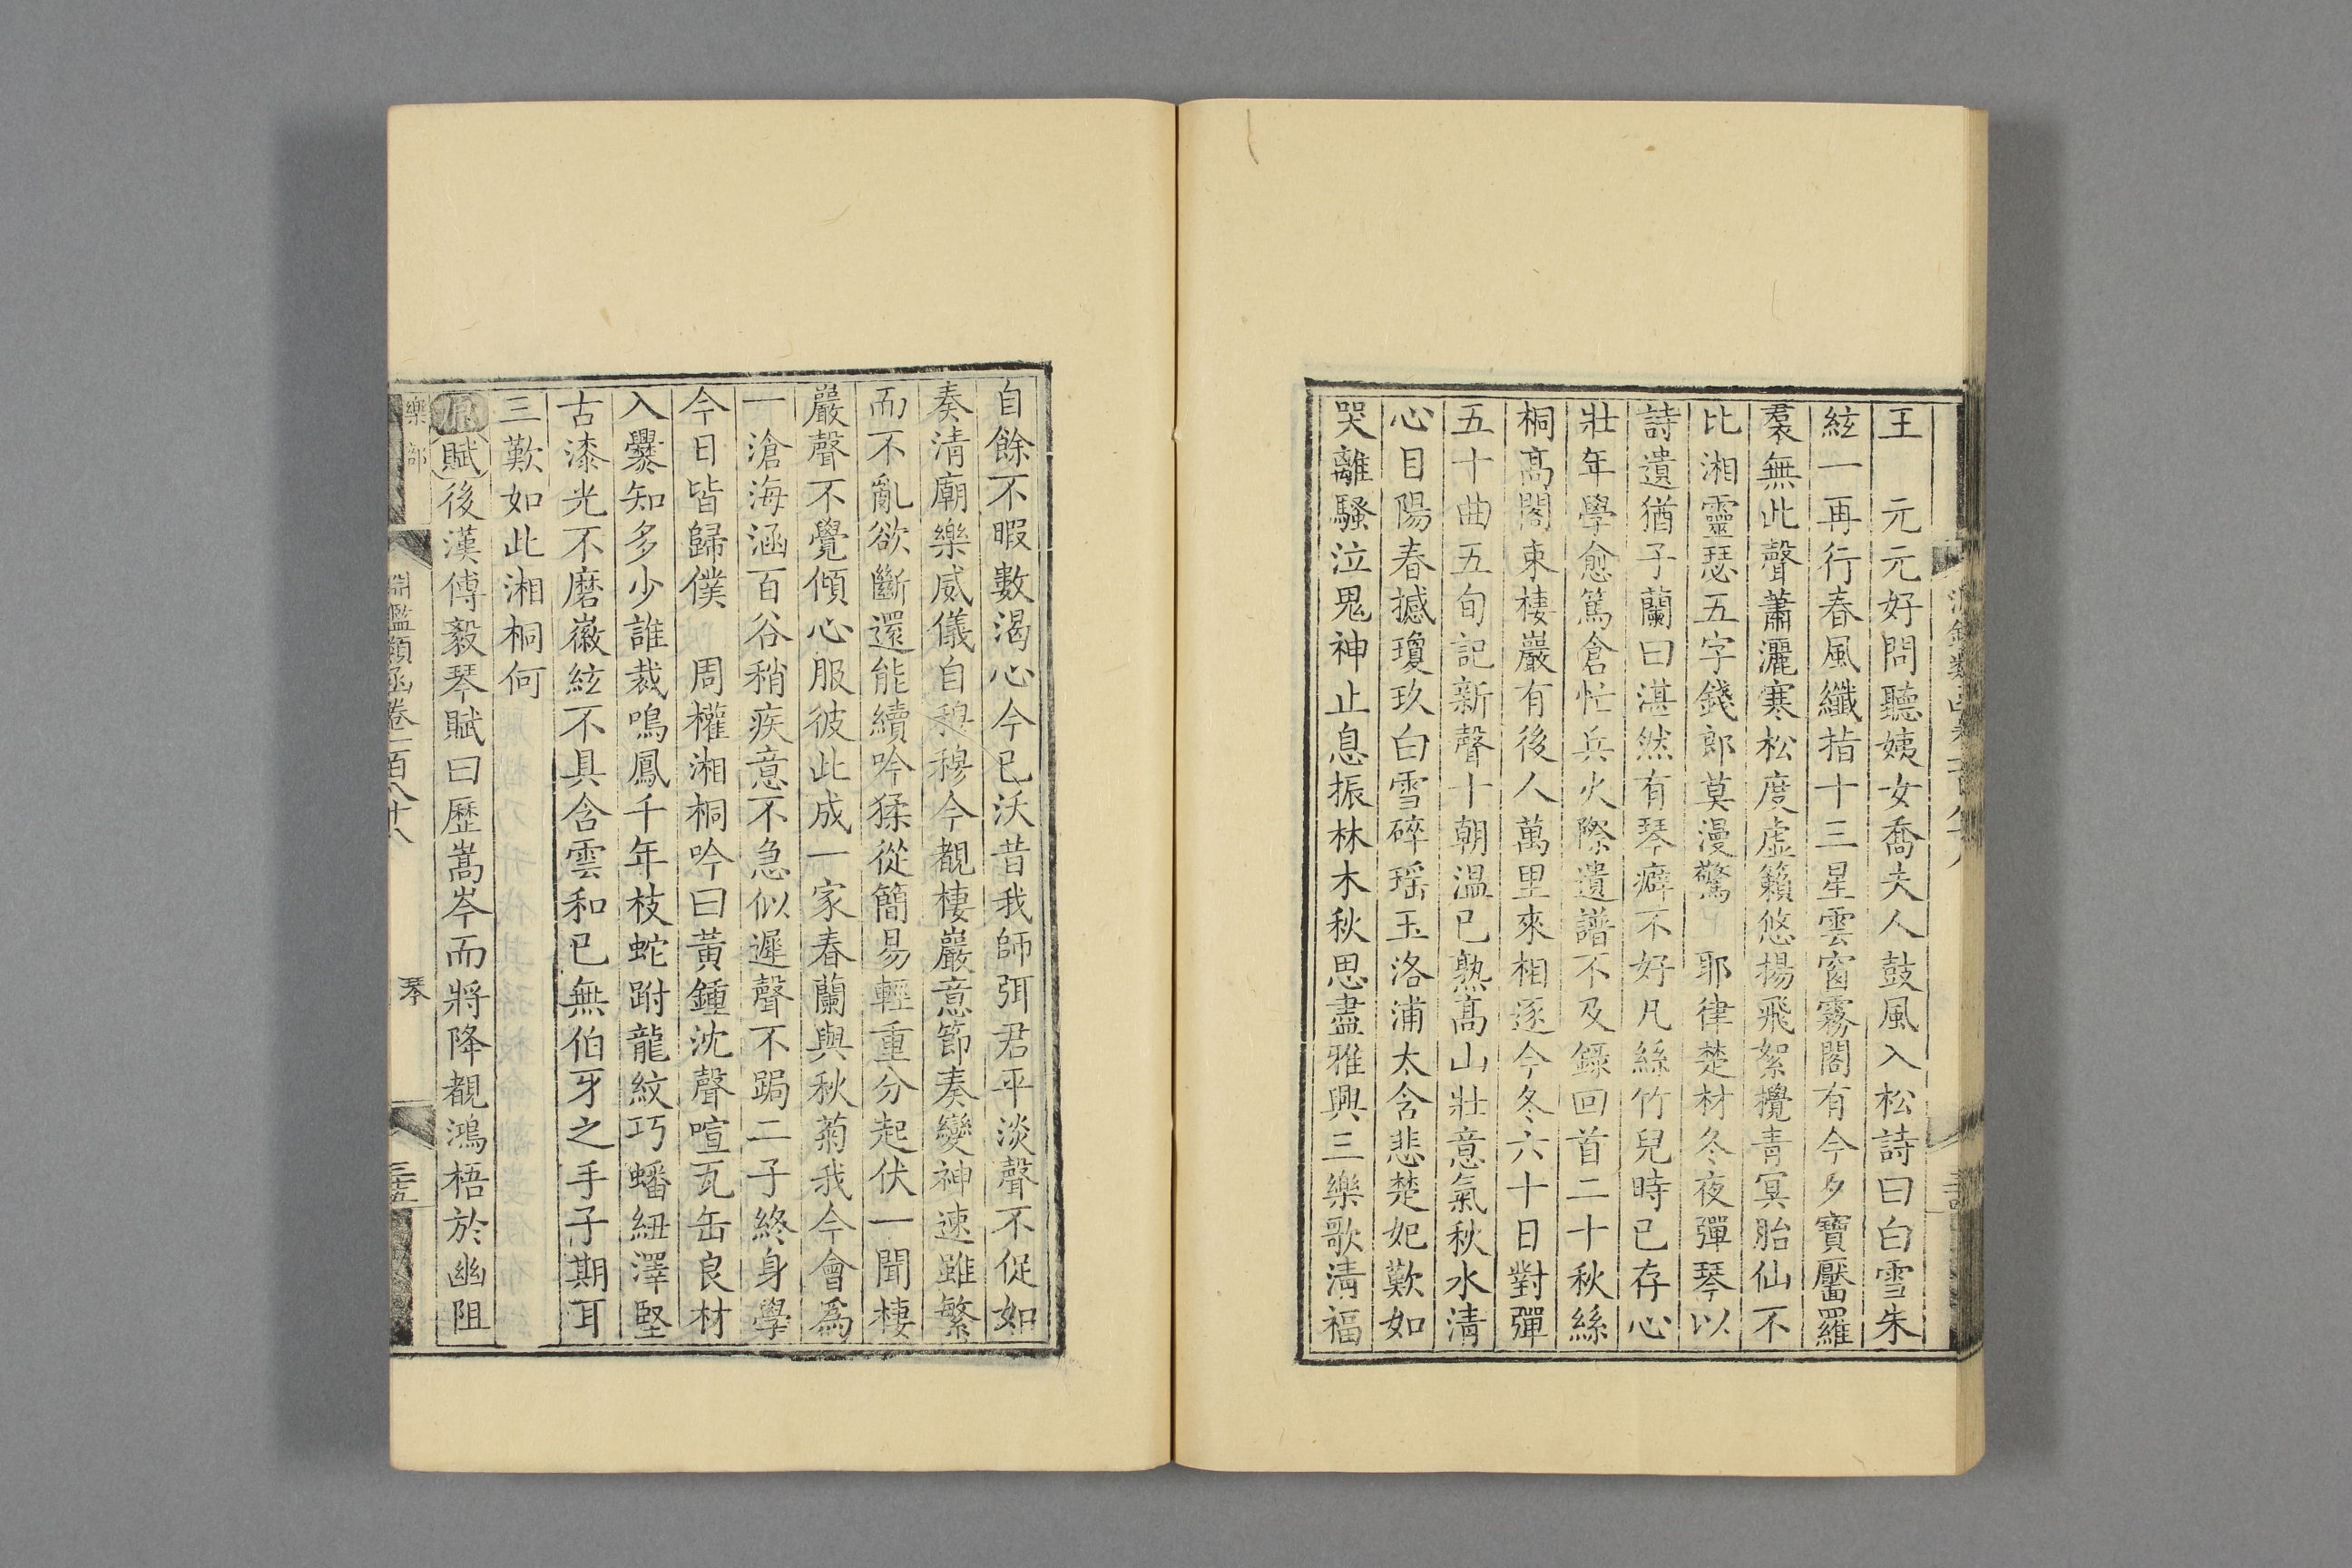 王　元元好問聽姨女喬夫人鼓風入松詩曰白雪朱
絃一再行春風纖指十三星雲窗霧閣有今夕寶靨羅
裠無此聲蕭灑寒松度虛籟悠揚飛絮攪青冥胎仙不
比湘靈瑟五字錢郎莫漫驚　耶律楚材冬夜彈琴以
詩遺猶子蘭曰湛然有琴癖不好凡絲竹兒時已存心
壯年學愈篤倉忙兵火際遺譜不及錄回首二十秋絲
桐高閣束棲巖有後人萬里來相逐今冬六十日對彈
五十曲五旬記新聲十朝温已熟高山壯意氣秋水清
心目陽春撼瓊玖白雪碎瑶玉洛浦太含悲楚妃歎如
哭離騷泣鬼神止息振林木秋思盡雅興三樂歌清福
自餘不暇數渴心今已沃昔我師弭君平淡聲不促如
奏清廟樂威儀自穆穆今觀棲巖意節奏變神速雖繁
而不亂欲斷還能續吟猱從簡易輕重分起伏一聞棲
嚴聲不覺傾心服彼此成一家春蘭與秋菊我今會爲
一滄海涵百谷稍疾意不急似遲聲不跼二子終身學
今日皆歸僕　周權湘桐吟曰黃鍾沈聲喧瓦缶良材
入爨知多少誰裁鳴鳳千年枝蛇跗龍紋巧蟠紐澤堅
古漆光不磨徽絃不具含雲和已無伯牙之手子期耳
三歎如此湘桐何
原賦後漢傅毅琴賦曰歷嵩岑而將降覩鴻梧於幽阻
樂部
淵鑑類函卷一百八十八
琴
三十五